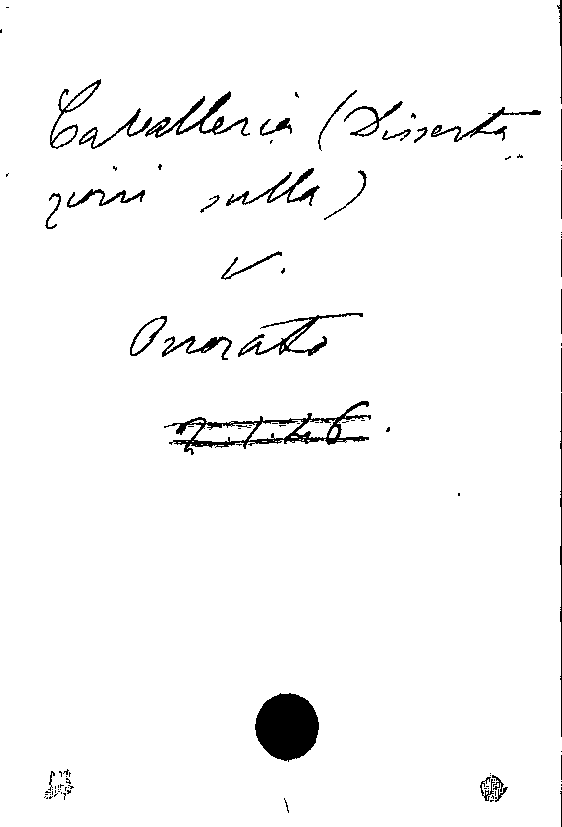 Cavalleria (Disserta
zioni sulla)
V.
Onorato
2.1.46.